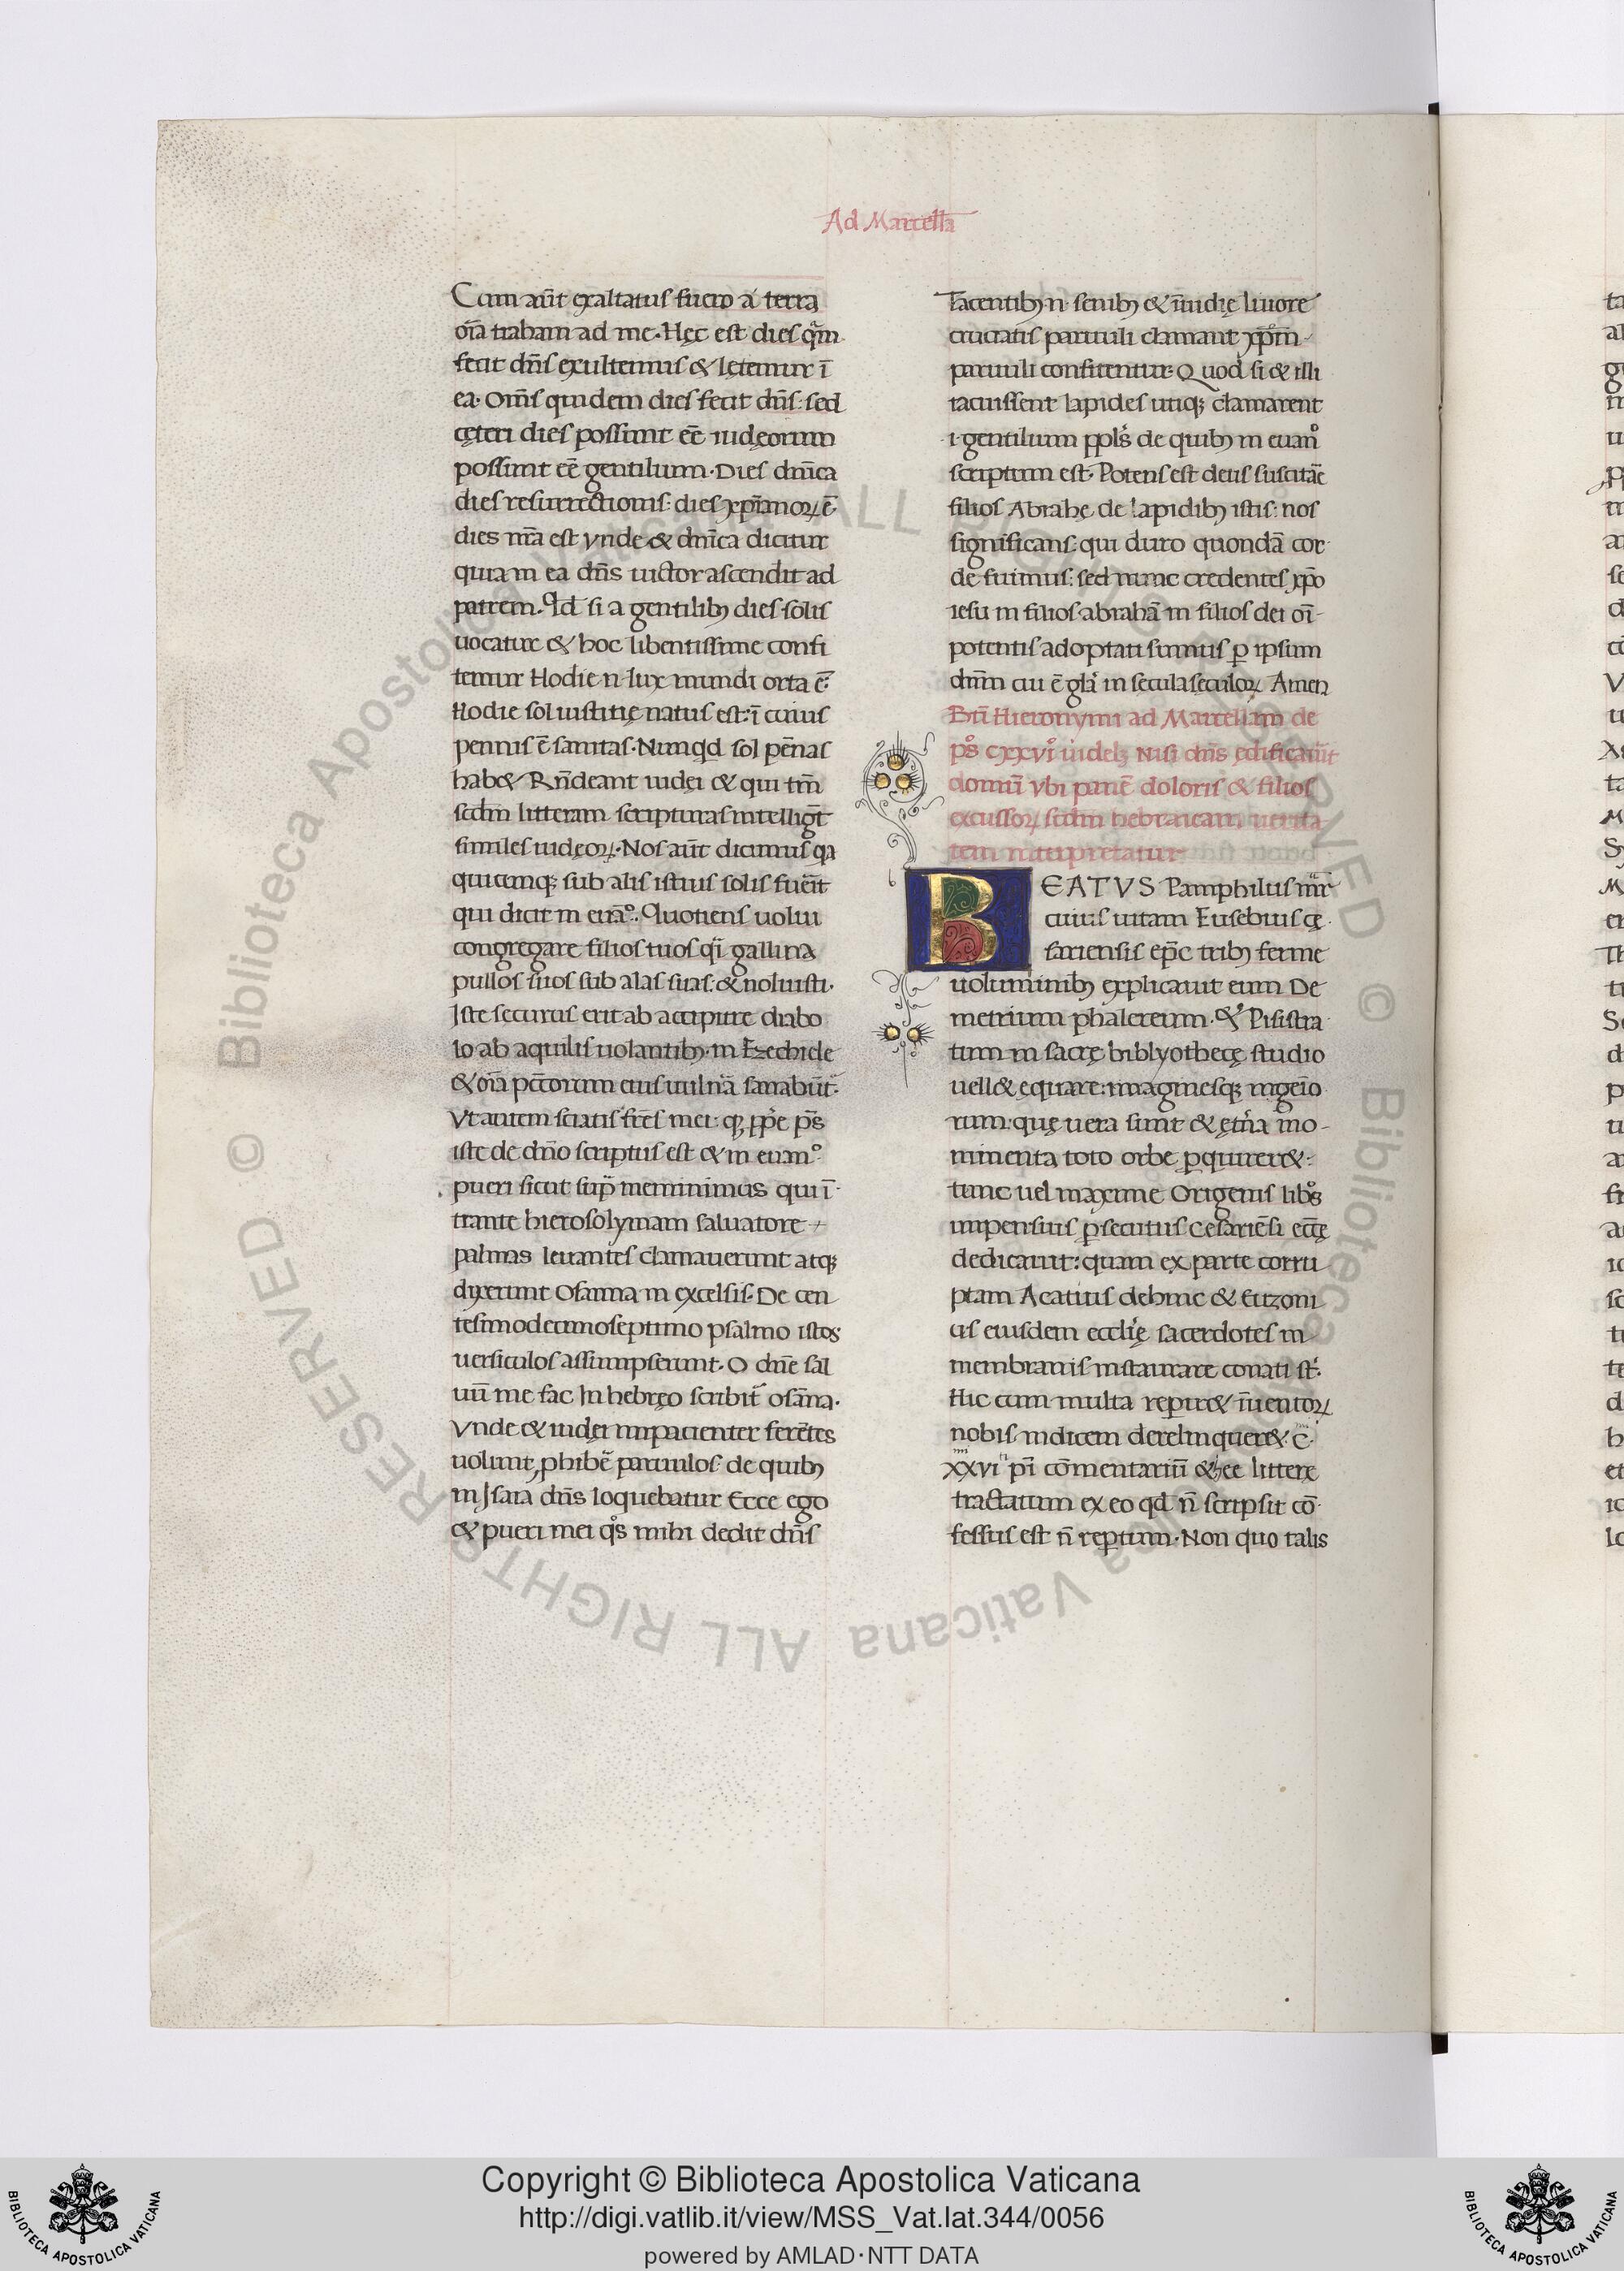 Ad Marcellā
Cum aūt exaltatus fuero a terra
oīa traham ad me. Hęc est dies quā
fecit dn̄s exultemus & lętemur ī
ea. Om̄s quidem dies fecit dn̄s: sed
cęteri dies possunt eē iudęorum
possunt eē gentilium. Dies dn̄ica
dies resurrectionis: dies xp̄ianoꝝ ē
dies nr̄a est vnde & dn̄ica dicitur
quia in ea dn̄s uictor ascendit ad
patrem. Qd si a gentilibꝫ dies solis
uocatur & hoc libentissime confi
temur Hodie n lux mundi orta ē.
Hodie sol iustitię natus est: ī cuius
pennis ē sanitas. Nunqd sol pēnas
hab& Rn̄deant iudęi & qui tm̄
scdm litteram scripturas intelligt̄
similes iudęoꝝ. Nos aūt dicimus qa
quicunqꝫ sub alis istius solis fuēit
qui dicit in euāᵒ. Quotiens uolui
congregare filios tuos qi gallina
pullos suos sub alas suas: & noluisti.
Iste securus erit ab accipitre diabo
lo ab aquilis uolantibꝫ in Ezechiele
& oīa pctorum eius uulnā sanabūt.
Vt autem sciatis frēs mei qꝫ ppe ps̄
iste de dn̄o scriptus est & in euanᵒ
pueri sicut sup̄ meminimus qui ī
trante hierosolymam saluatore
palmas leuantes clamauerunt atqꝫ
dixerunt Osanna in excelsis. De cen
tesimodecimoseptimo psalmo istos
uersiculos assumpserunt. O dn̄e sal
uū me fac In hebręo scribit̄ osāna.
Vnde & iudęi impacienter ferētes
uolunt ꝓhibē paruulos de quibꝫ
in Isaia dn̄s loquebatur Ecce ego
& pueri mei qs mihi dedit dn̄s
Tacentibꝫ n senibꝫ & īuidię liuore
cruciatis paruuli clamant xp̄m
paruuli confitentur. Quod si & illi
tacuissent lapides utiqꝫ clamarent
.i. gentilium ppls de quibꝫ in euanᵒ
scriptum est. Potens est deus suscitāe
filios Abrahę de lapidibꝫ istis: nos
significans: qui duro quondā cor
de fuimus: sed nunc credentes xp̄o
iesu in filios abrahā in filios dei oī
potentis adoptati sumus ꝑ ipsum
dnm̄ cui ē gla in secula seculoꝝ Amen
Btī Hieronymi ad Marcellam de
psᵒ cxxvi uidelꝫ Nisi dn̄s ędificauīt
domū vbi panē doloris & filios
excussoꝝ scdm hebraicam uerita
tem interpretatur
BEATVS Pamphilus mr̄
cuius uitam Eusebius cę
sariensis ep̄c tribꝫ ferme
uoluminibꝫ explicauit eum De
metrium phalereum. & Pisistra
tum in sacrę biblyothecę studio
uell& ęquare: imaginesqꝫ ingēio
rum: quę uera sunt & ętn̄a mo
nimenta toto orbe ꝑquirer&:
tunc uel maxime Origenis libꝰs
impensius ꝓsecutus Cesariēsi ecc̄ę
dedicauit: quam ex parte corru
ptam Acatius dehinc & Euzoni
us eiusdem ecclię sacerdotes in
membranis instaurare conati st̄.
Hic cum multa reperir& īuentoꝝ
nobis indicem derelinquer& C
XXVI pī cōmentariū & hee litterę
tractatum ex eo qd n̄ scripsit cō
fessus est n̄ repertum. Non quo talis
Copyright © Biblioteca Apostolica Vaticana
http://digi.vatlib.it/view/MSS_Vat.lat.344/0056
powered by AMLAD·NTT DATA
BIBLIOTECA APOSTOLICA VATICANA
BIBLIOTECA APOSTOLICA VATICANA
© Biblioteca Apostolica Vaticana ALL RIGHTS RESERVED © Biblioteca Apostolica Vaticana ALL RIGHTS RESERVED